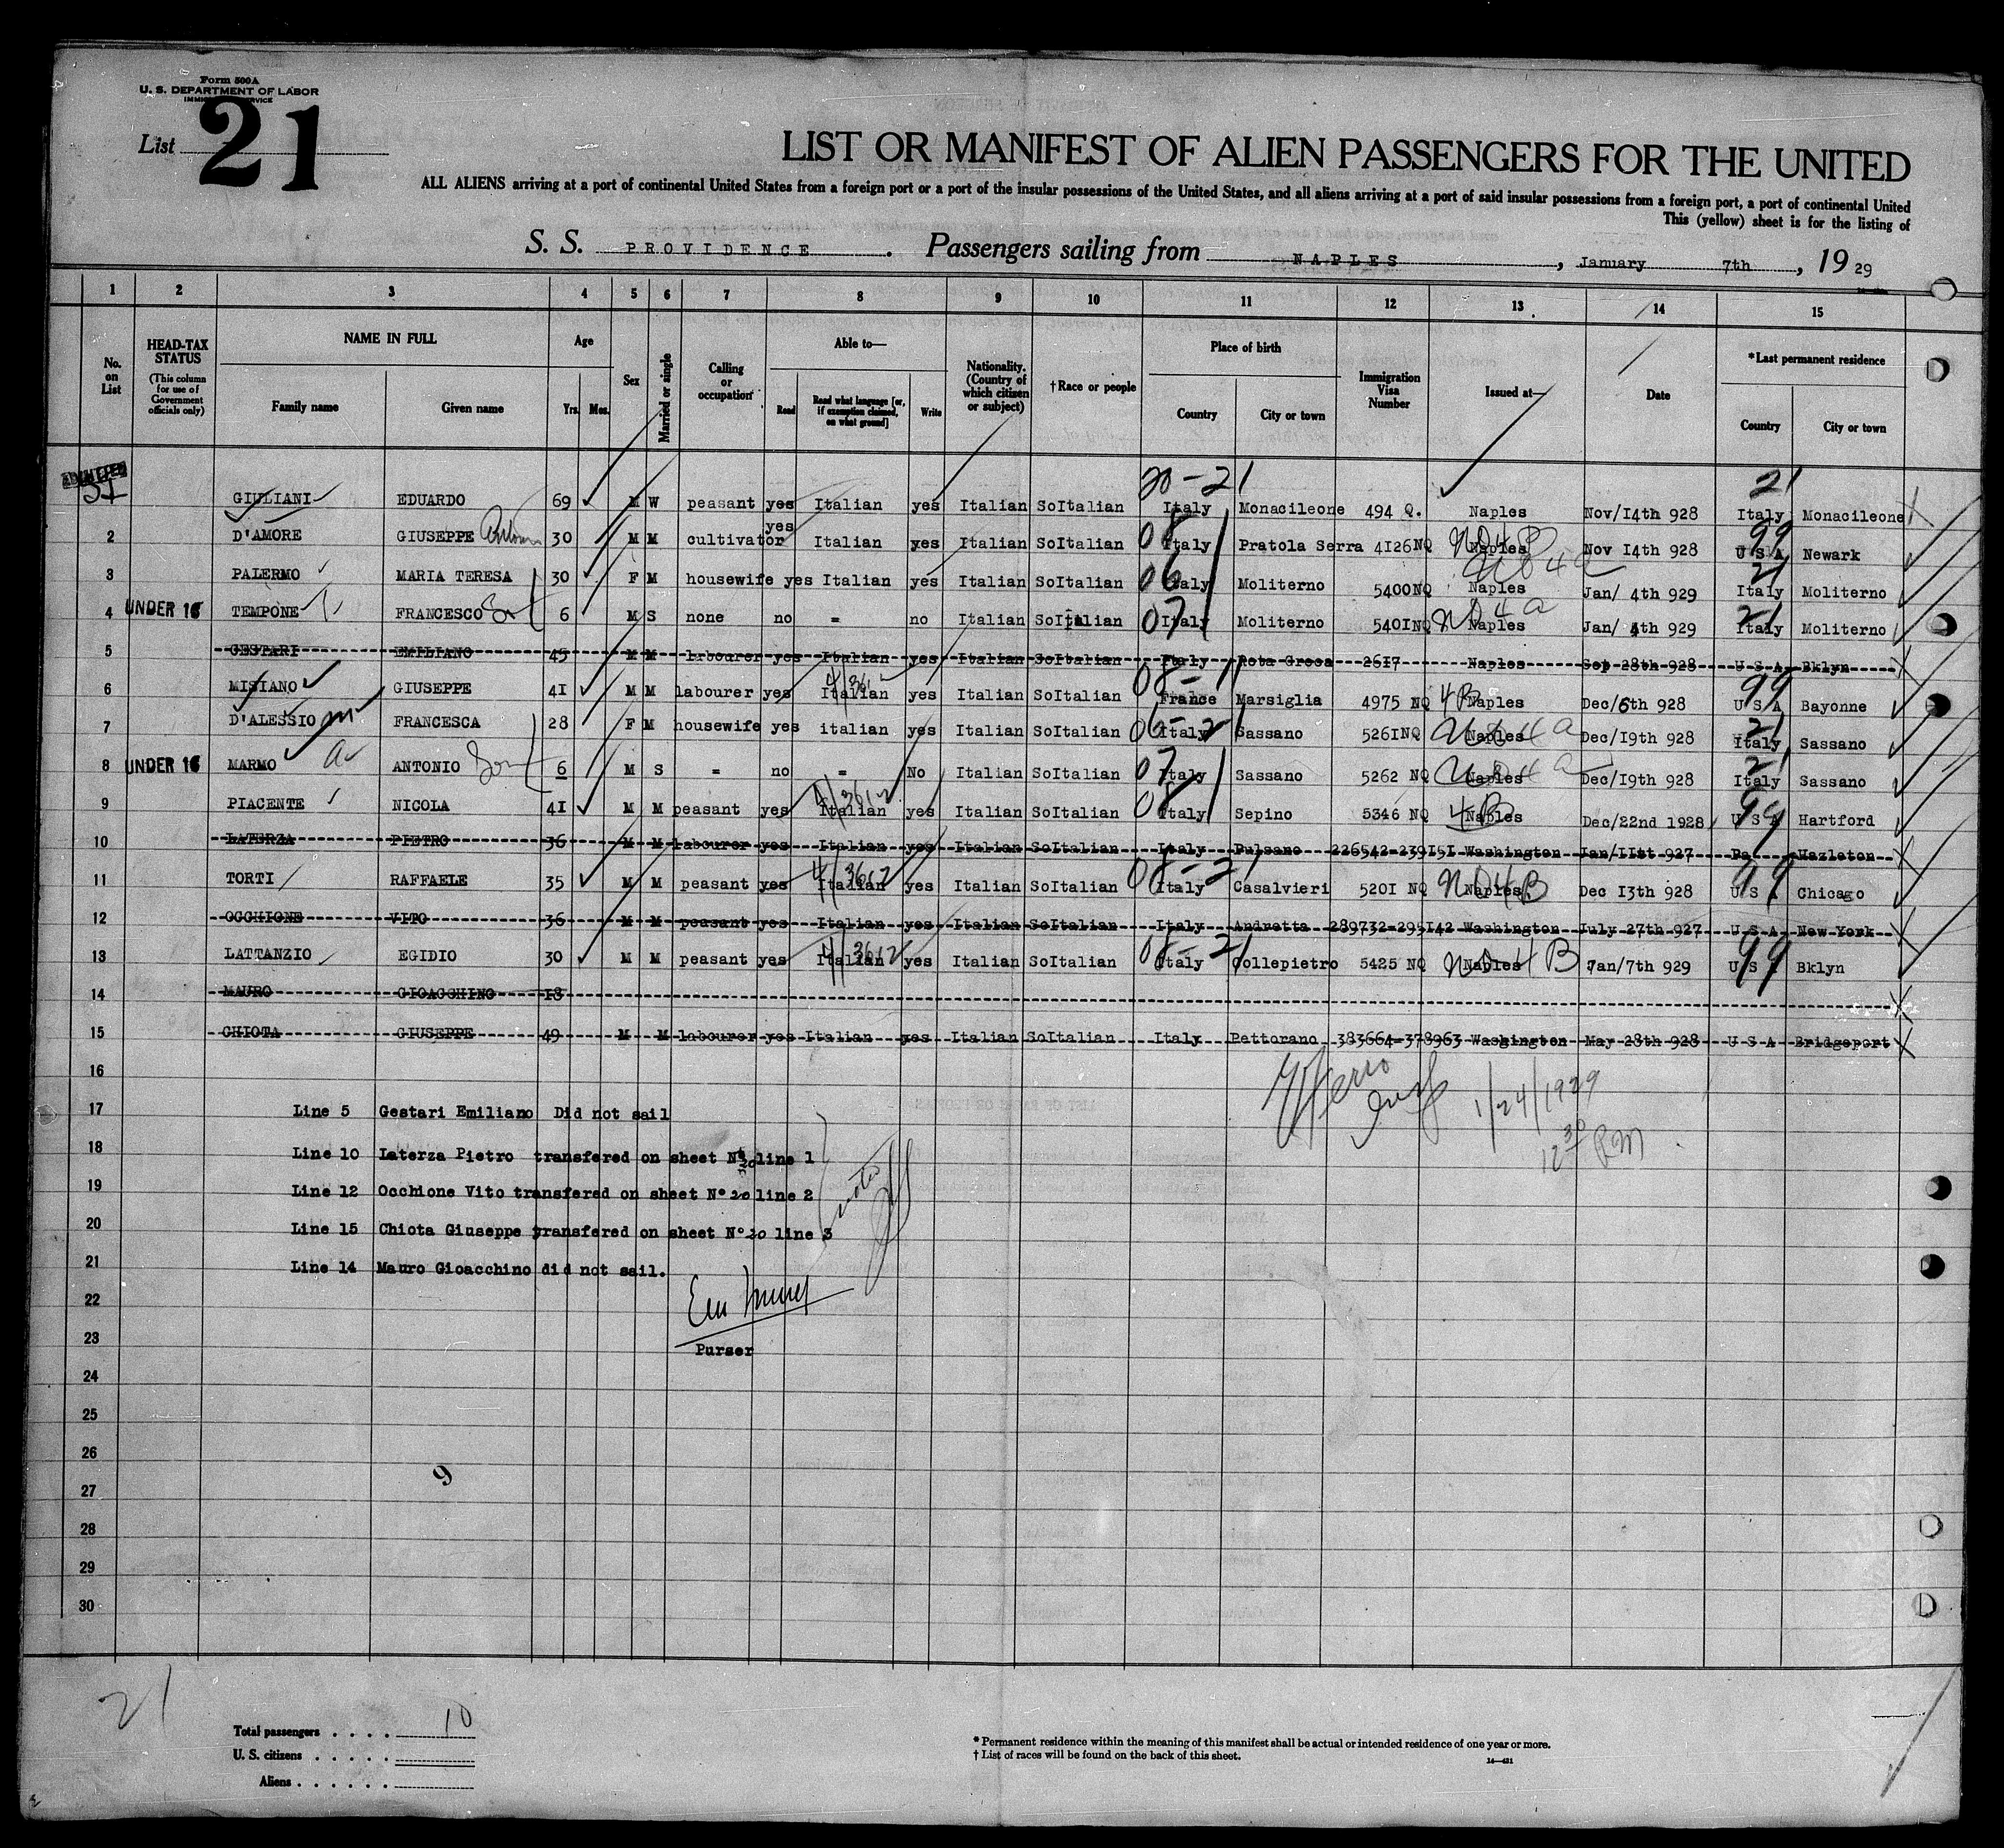 Form 500A
U. S. DEPARTMENT OF LABOR
List 21
LIST OR MANIFEST OF ALIEN PASSENGERS FOR THE UNITED
ALL ALIENS arriving at a port of continental United States from a foreign port or a port of the insular possessions of the United States, and all aliens arriving at a port of said insular possessions from a foreign port, a port of continental United
This (yellow) sheet is for the listing of
S. S. PROVIDENCE. Passengers sailing from NAPLES, January 7th, 1929
1 2 3 4 5 6 7 8 9 10 11 12 13 14 15
No. on List
HEAD-TAX STATUS
(This column for use of Government officials only)
NAME IN FULL
Family name Given name
Age
Yrs. Mos.
Sex
Married or single
Calling or occupation
Able to—
Read
Read what language [or, if exemption claimed, on what ground]
Write
Nationality. (Country of which citizen or subject)
†Race or people
Place of birth
Country City or town
Immigration Visa Number
Issued at—
Date
*Last permanent residence
Country City or town
ADMITTED
20-21 21
GIULIANI EDUARDO 69 M W peasant yes Italian yes Italian SoItalian Italy Monacileone 494 Q. Naples Nov/14th 928 Italy Monacileone
2 D'AMORE GIUSEPPE 30 M M cultivator yes Italian yes Italian SoItalian 08 Italy Pratola Serra 4126NQ Naples Nov 14th 928 99 U S A Newark
3 PALERMO MARIA TERESA 30 F M housewife yes Italian yes Italian SoItalian 06 Italy Moliterno 5400NQ Naples Jan/ 4th 929 21 Italy Moliterno
4 UNDER 16 TEMPONE FRANCESCO 6 M S none no = no Italian SoItalian 07 Italy Moliterno 5401NQ Naples Jan/ 4th 929 21 Italy Moliterno
5 GESTARI EMILIANO 45 M M labourer yes Italian yes Italian SoItalian Italy Rota Greca 2617 Naples Sep 28th 928 U S A Bklyn
6 MISIANO GIUSEPPE 41 M M labourer yes Italian yes Italian SoItalian France Marsiglia 4975 NQ 4B Naples Dec/6th 928 99 U S A Bayonne
7 D'ALESSIO FRANCESCA 28 F M housewife yes italian yes Italian SoItalian Italy Sassano 5261NQ Naples Dec/19th 928 21 Italy Sassano
8 UNDER 16 MARMO ANTONIO Son 6 M S = no = No Italian SoItalian 07 Italy Sassano 5262 NQ Naples Dec/19th 928 21 Italy Sassano
9 PIACENTE NICOLA 41 M M peasant yes Italian yes Italian SoItalian 08 Italy Sepino 5346 NQ 4B Naples Dec/22nd 1928 99 U S A Hartford
10 LATERZA PIETRO 36 M M labourer yes Italian yes Italian SoItalian Italy Pulsano 226542-239151 Washington Jan/11st 927 Pa Hazleton
11 TORTI RAFFAELE 35 M M peasant yes Italian yes Italian SoItalian Italy Casalvieri 5201 NQ Naples Dec 13th 928 99 U S A Chicago
12 OCCHIONE VITO 36 M M peasant yes Italian yes Italian SoItalian Italy Andretta 289732-295142 Washington July 27th 927 U S A New York
13 LATTANZIO EGIDIO 30 M M peasant yes Italian yes Italian SoItalian Italy Collepietro 5425 NQ Naples Jan/7th 929 99 U S A Bklyn
14 MAURO GIOACCHINO 18
15 CHIOTA GIUSEPPE 49 M M labourer yes Italian yes Italian SoItalian Italy Pettorano 383664-378963 Washington May 28th 928 U S A Bridgeport
16
1/24/1929
12 30 PM
17 Line 5 Gestari Emiliano Did not sail
18 Line 10 Laterza Pietro transfered on sheet N° 20 line 1
19 Line 12 Occhione Vito transfered on sheet N° 20 line 2
20 Line 15 Chiota Giuseppe transfered on sheet N° 20 line 3
21 Line 14 Mauro Gioacchino did not sail.
22
23
Purser
24
25
26
9
27
28
29
30
21
Total passengers . . . . 10
U. S. citizens . . . . .
Aliens . . . . . .
* Permanent residence within the meaning of this manifest shall be actual or intended residence of one year or more.
† List of races will be found on the back of this sheet.